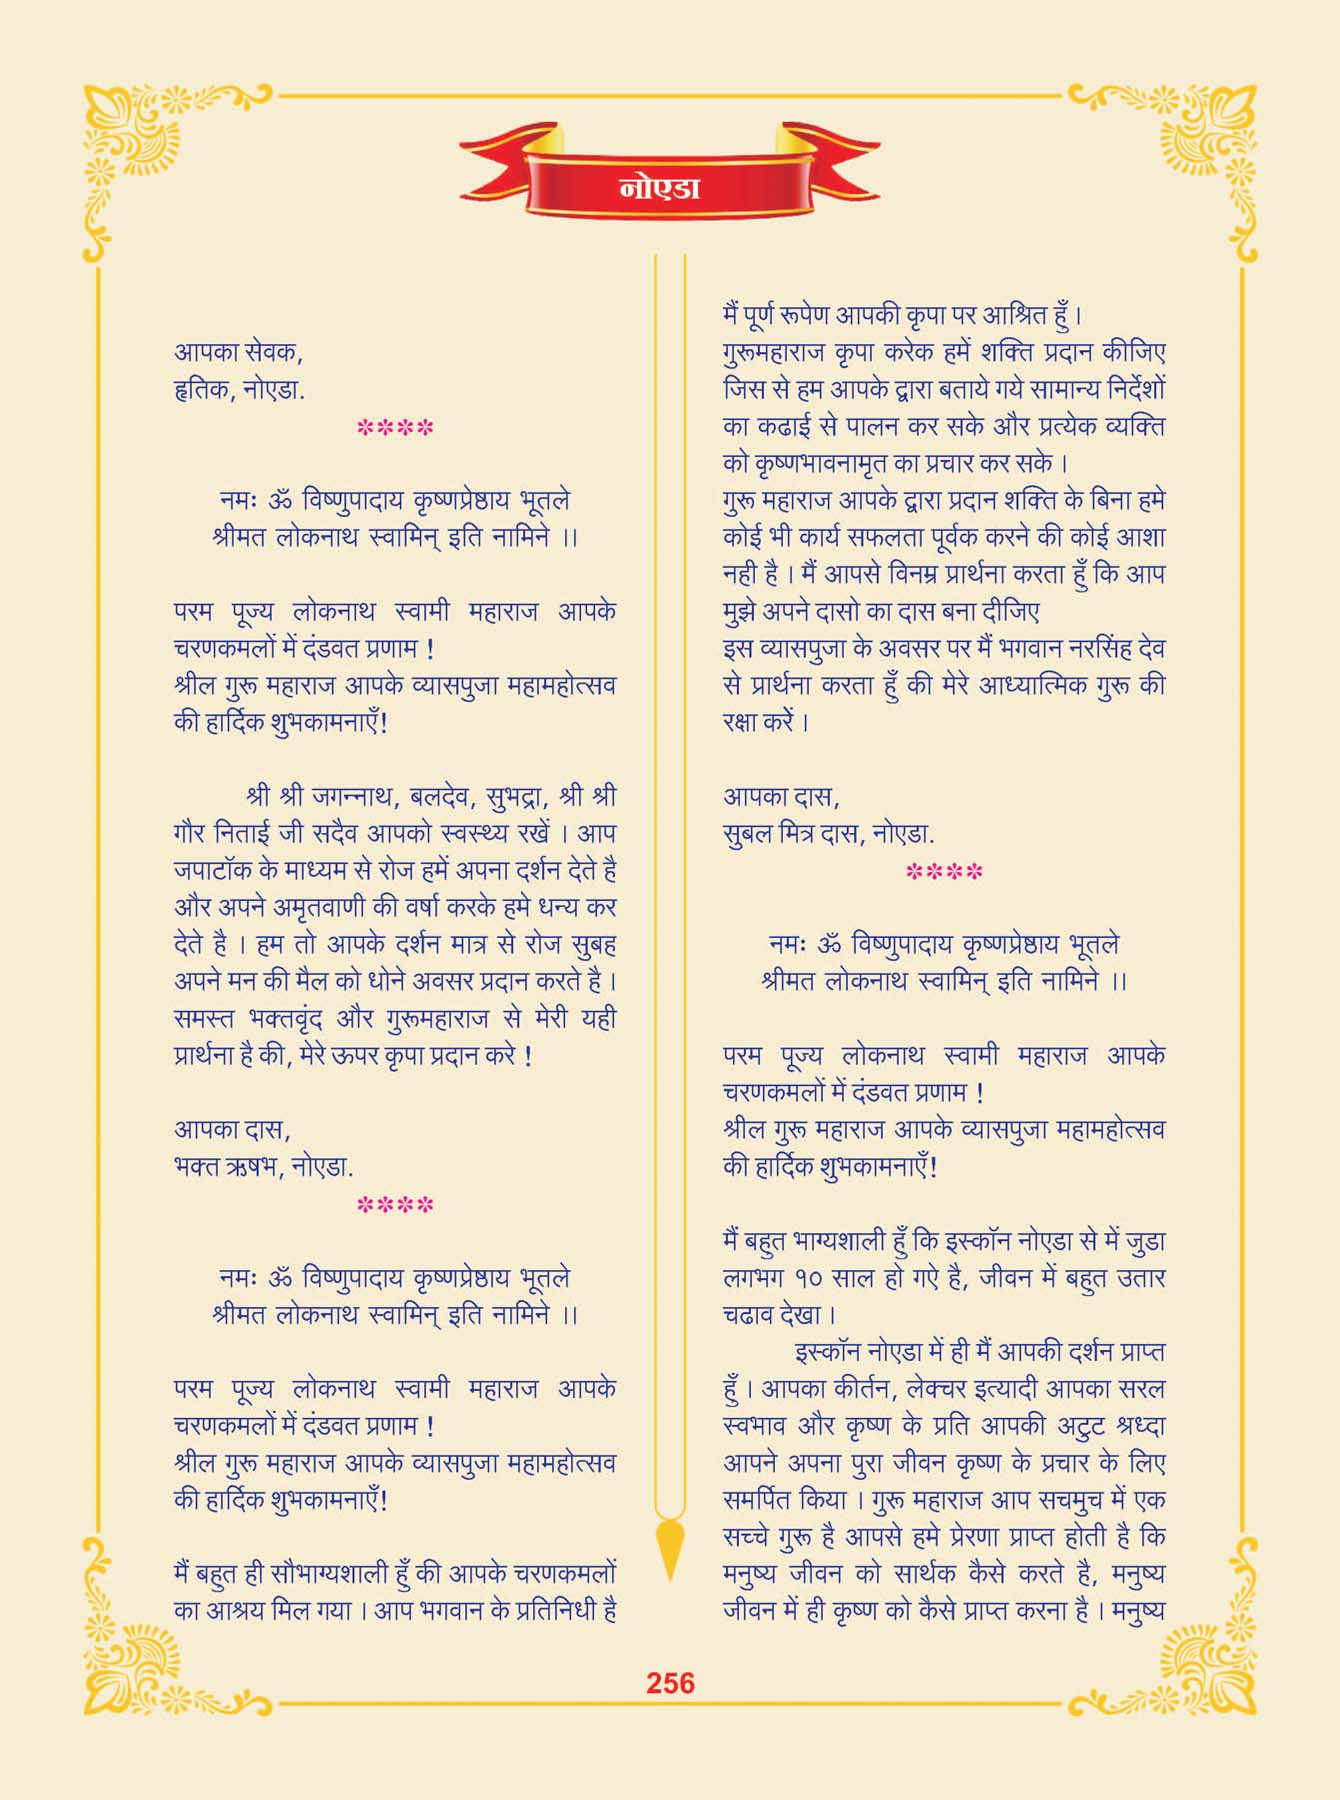 नोएडा
आपका सेवक,
हृतिक, नोएडा.
****
नमः ॐ विष्णुपादाय कृष्णप्रेष्ठाय भूतले
श्रीमत लोकनाथ स्वामिन् इति नामिने ।।
परम पूज्य लोकनाथ स्वामी महाराज आपके
चरणकमलों में दंडवत प्रणाम !
श्रील गुरू महाराज आपके व्यासपुजा महामहोत्सव
की हार्दिक शुभकामनाएँ!
श्री श्री जगन्नाथ, बलदेव, सुभद्रा, श्री श्री
गौर निताई जी सदैव आपको स्वस्थ्य रखें । आप
जपाटॉक के माध्यम से रोज हमें अपना दर्शन देते है
और अपने अमृतवाणी की वर्षा करके हमे धन्य कर
देते है । हम तो आपके दर्शन मात्र से रोज सुबह
अपने मन की मैल को धोने अवसर प्रदान करते है ।
समस्त भक्तवृंद और गुरूमहाराज से मेरी यही
प्रार्थना है की, मेरे ऊपर कृपा प्रदान करे !
आपका दास,
भक्त ऋषभ, नोएडा.
****
नमः ॐ विष्णुपादाय कृष्णप्रेष्ठाय भूतले
श्रीमत लोकनाथ स्वामिन् इति नामिने ।।
परम पूज्य लोकनाथ स्वामी महाराज आपके
चरणकमलों में दंडवत प्रणाम !
श्रील गुरू महाराज आपके व्यासपुजा महामहोत्सव
की हार्दिक शुभकामनाएँ!
मैं बहुत ही सौभाग्यशाली हुँ की आपके चरणकमलों
का आश्रय मिल गया । आप भगवान के प्रतिनिधी है
मैं पूर्ण रूपेण आपकी कृपा पर आश्रित हुँ ।
गुरूमहाराज कृपा करेक हमें शक्ति प्रदान कीजिए
जिस से हम आपके द्वारा बताये गये सामान्य निर्देशों
का कढाई से पालन कर सके और प्रत्येक व्यक्ति
को कृष्णभावनामृत का प्रचार कर सके ।
गुरू महाराज आपके द्वारा प्रदान शक्ति के बिना हमे
कोई भी कार्य सफलता पूर्वक करने की कोई आशा
नही है । मैं आपसे विनम्र प्रार्थना करता हुँ कि आप
मुझे अपने दासो का दास बना दीजिए
इस व्यासपुजा के अवसर पर मैं भगवान नरसिंह देव
से प्रार्थना करता हुँ की मेरे आध्यात्मिक गुरू की
रक्षा करें ।
आपका दास,
सुबल मित्र दास, नोएडा.
****
नमः ॐ विष्णुपादाय कृष्णप्रेष्ठाय भूतले
श्रीमत लोकनाथ स्वामिन् इति नामिने ।।
परम पूज्य लोकनाथ स्वामी महाराज आपके
चरणकमलों में दंडवत प्रणाम !
श्रील गुरू महाराज आपके व्यासपुजा महामहोत्सव
की हार्दिक शुभकामनाएँ!
मैं बहुत भाग्यशाली हुँ कि इस्कॉन नोएडा से में जुडा
लगभग १० साल हो गऐ है, जीवन में बहुत उतार
चढाव देखा ।
इस्कॉन नोएडा में ही मैं आपकी दर्शन प्राप्त
हुँ । आपका कीर्तन, लेक्चर इत्यादी आपका सरल
स्वभाव और कृष्ण के प्रति आपकी अटुट श्रध्दा
आपने अपना पुरा जीवन कृष्ण के प्रचार के लिए
समर्पित किया । गुरू महाराज आप सचमुच में एक
सच्चे गुरू है आपसे हमे प्रेरणा प्राप्त होती है कि
मनुष्य जीवन को सार्थक कैसे करते है, मनुष्य
जीवन में ही कृष्ण को कैसे प्राप्त करना है । मनुष्य
256